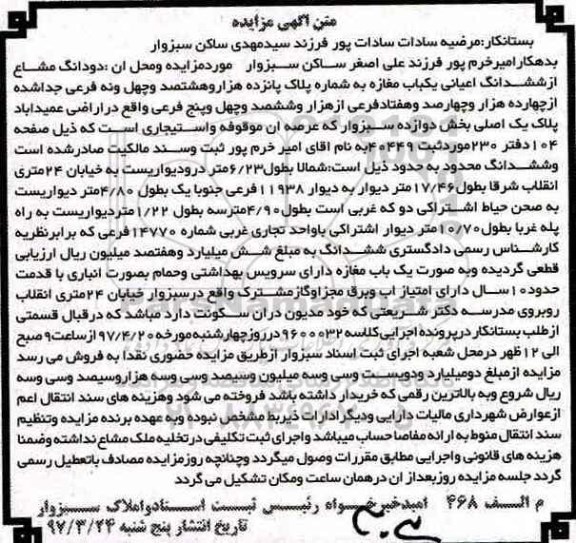 متن آگهی مزایده
بستانکار:مرضیه سادات سادات پور فرزند سیدمهدی ساکن سبزوار
بدهکارامیرخرم پور فرزند علی اصغر ساکن سبزوار موردمزایده ومحل ان :دودانگ مشاع
ازششدانگ اعیانی یکباب مغازه به شماره پلاک پانزده هزاروهشتصد وچهل ونه فرعی جداشده
ازچهارده هزار وچهارصد وهفتادفرعی ازهزار وششصد وچهل وپنج فرعی واقع دراراضی عمیدآباد
پلاک یک اصلی بخش دوازده سبزوار که عرصه ان موقوفه واستیجاری است که ذیل صفحه
۱۰۴دفتر ۲۳۰موردثبت ۴۰۴۴۹به نام اقای امیر خرم پور ثبت وسند مالکیت صادرشده است
وششدانگ محدود به حدود ذیل است:شمالا بطول۶/۲۳متر درودیواریست به خیابان ۲۴متری
انقلاب شرقا بطول۱۷/۴۶متر دیوار به دیوار ۱۱۹۳۸فرعی جنوبا یک بطول ۴/۸۰متر دیواریست
به صحن حیاط اشتراکی دو که غربی است بطول۴/۹۰مترسه بطول ۱/۲۲متردیواریست به راه
پله غربا بطول۱۰/۷۰متر دیوار اشتراکی باواحد تجاری غربی شماره ۱۴۷۷۰فرعی که برابرنظریه
کارشناس رسمی دادگستری ششدانگ به مبلغ شش میلیارد وهفتصد میلیون ریال ارزیابی
قطعی گردیده وبه صورت یک باب مغازه دارای سرویس بهداشتی وحمام بصورت انباری با قدمت
حدود۱۰سال دارای امتیاز اب وبرق مجزاوگازمشترک واقع درسبزوار خیابان ۲۴متری انقلاب
روبروی مدرسه دکتر شریعتی که خود مدیون دران سکونت دارد میباشد که درقبال قسمتی
ازطلب بستانکار درپرونده اجرایی کلاسه ۹۶۰۰۰۳۲درروزچهارشنبه مورخه ۹۷/۴/۲۰ازساعت۹صبح
الی ۱۲ظهر درمحل شعبه اجرای ثبت اسناد سبزوار ازطریق مزایده حضوری نقدا به فروش می رسد
مزایده ازمبلغ دومیلیارد ودویست وسی وسه میلیون وسیصد وسی وسه هزاروسیصد وسی وسه
ریال شروع وبه بالاترین رقمی که خریدار داشته باشد فروخته می شود وهزینه های سند انتقال اعم
ازعوارض شهرداری مالیات دارایی ودیگر ادارات ذیربط مشخص نبوده وبه عهده برنده مزایده وتنظیم
سند انتقال منوط به ارائه مفاصاحساب میباشد واجرای ثبت تکلیفی درتخلیه ملک مشاع نداشته وضمنا
هزینه های قانونی واجرایی مطابق مقررات وصول میگردد وچنانچه روزمزایده مصادف باتعطیل رسمی
گردد جلسه مزایده روزبعداز ان درهمان ساعت ومکان تشکیل می گردد
م الف ۴۶۸ امیدخیرخواه رئیس ثبت اسنادواملاک سبزوار
تاریخ انتشار پنج شنبه ۹۷/۳/۲۴